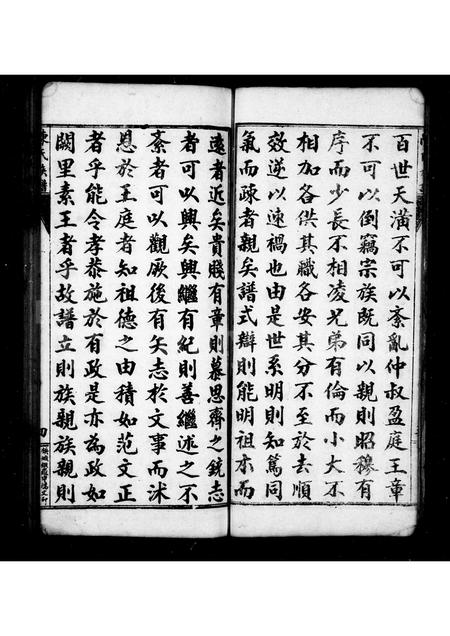 百世天潢不可以紊亂仲叔盈庭王章
不可以倒竊宗族既同以親則昭穆有
序而少長不相凌兄弟有倫而小大不
相加各供其職各安其分不至於去順
效逆以速禍也由是世系明則知篤同
氣而疎者親矣譜式辯則能明祖木而
遠者近矣貴賤有章則慕思齊之銳志
者可以興矣興繼有紀則善繼述之不
紊者可以觀厥後有矢志於文事而沐
恩於王庭者知祖德之由積如范文正
者乎能令孝恭施於有政是亦為政如
闕里素王者乎故譜立則族親族親則
陳氏族譜